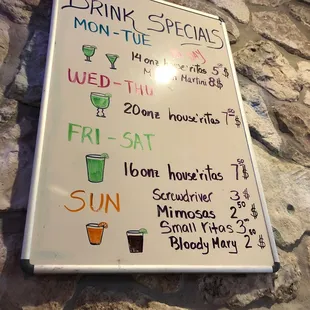 DRINK SPECIALS
MON-TUE
14 onz house'ritas 5 $
Martini 8 $
WED-THU
20 onz house'ritas 7 $
FRI-SAT
16 onz house'ritas 7 $
SUN
Screwdriver 3 $
Mimosas 2 50 $
Small Ritas 3 $
Bloody Mary 2 $